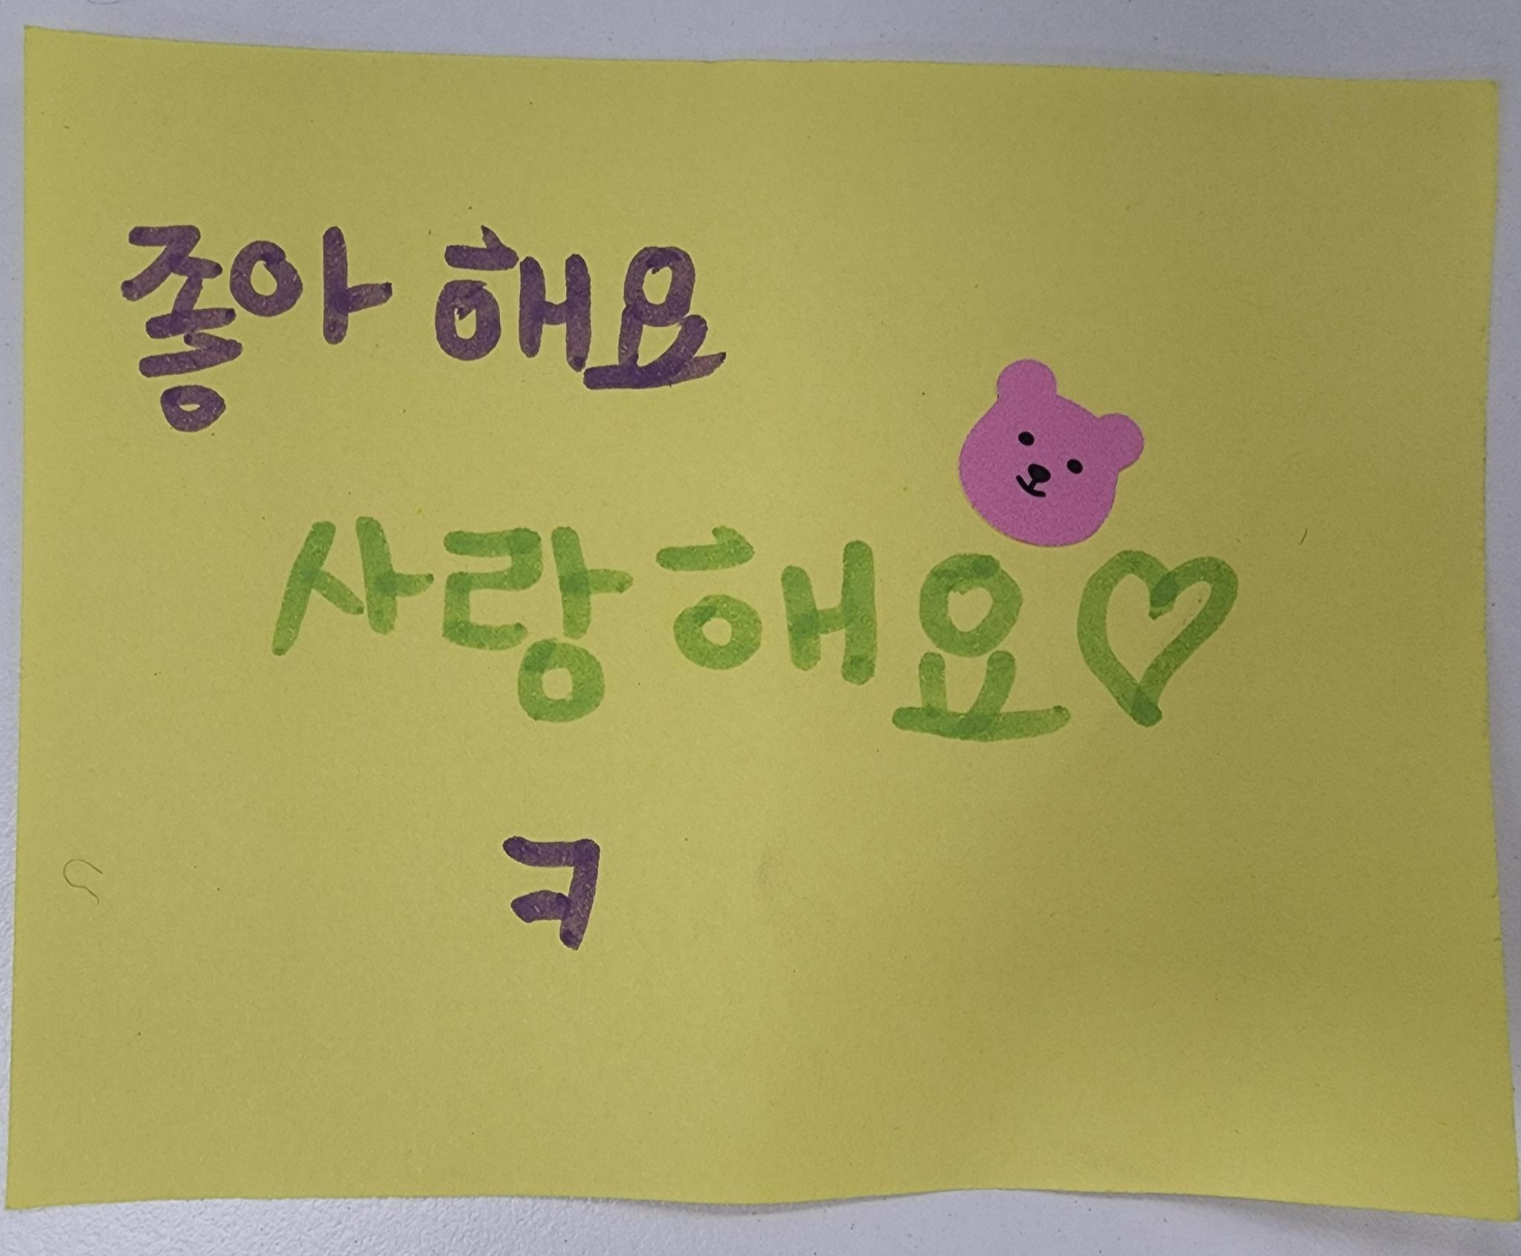 좋아 해요
사랑해요♡
ㅋ